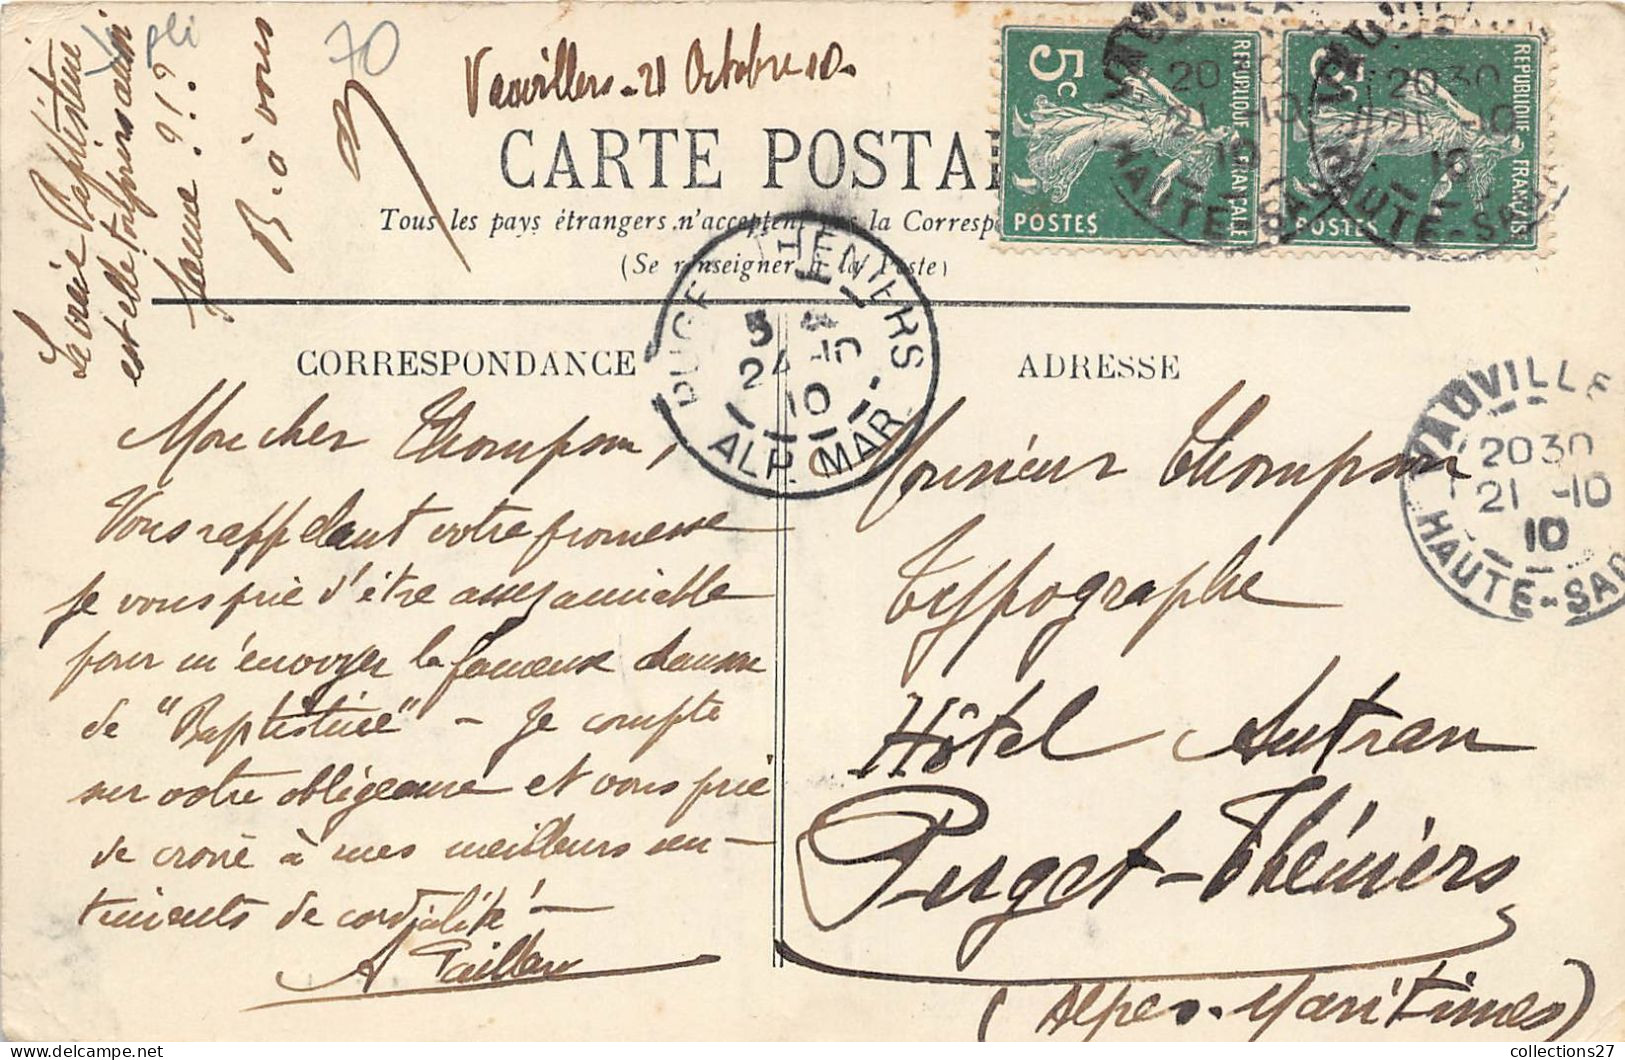 70
pli
Vauvillers - 21 Octobre 10.
CARTE POSTA
Tous les pays étrangers n'acceptent pas la Corresp
(Se renseigner à la Poste)
5c
REPUBLIQUE FRANÇAISE
POSTES
REPUBLIQUE FRANÇAISE
POSTES
VAUVILLE
20 30
21 -10
10
HAUTE-SA
VAUVILLE
20 30
21 -10
10
HAUTE-SA
PUGET THENIERS
24 -10
10
ALP. MAR.
La vraie Baptistine
est elle toujours aussi
jeune ?!?
B. à vous
CORRESPONDANCE
Mon cher Thompson,
Vous rappelant votre promesse
je vous prie d'être assez aimable
pour m'envoyer la fameuse chanson
de "Baptistine" - Je compte
sur votre obligeance et vous prie
de croire à mes meilleurs sen-
timents de cordialité! -
A
ADRESSE
Monsieur Thompson
Typographe
Hôtel Autran
Puget-Théniers
(Alpes-Maritimes)
VAUVILLE
20 30
21 -10
10
HAUTE-SA
collections27